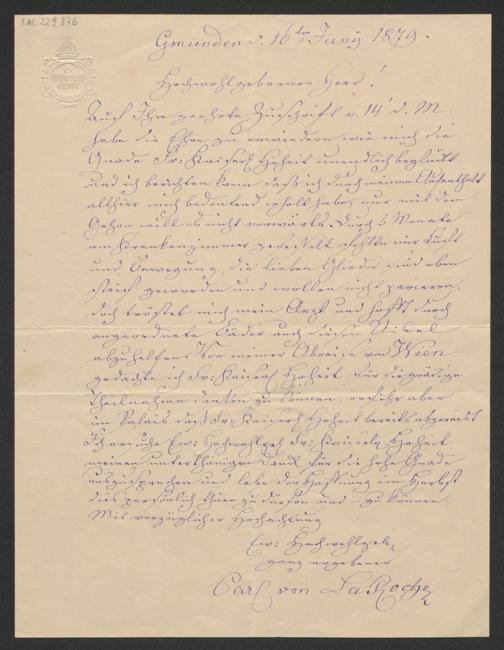 I.N. 229.876
Gmunden d. 16ten Juny 1879.
Hochwohlgeborner Herr!
Auf Ihre geehrte Zuschrift v. 14t d. M.
habe die Ehre zu erwiedern wie mich die
Gnade Sr: Kaiserl Hoheit unendlich beglückt
und ich berichten kann daß ich durch meinen Aufenthalt
allhier mich bedeutend erholt habe, nur mit dem
Gehen will es nicht vorwärts. Durch 5 Monate
am Krankenzimmer fehlte mir Luft
und Bewegung, die lieben Glieder sind eben
steif geworden und wollen nicht pariren,
doch tröstet mich mein Arzt und hofft durch
angeordnete Bäder auch diesem Übel
abzuhelfen. Vor meiner Abreise von Wien
gedachte ich Sr: Kaiserl Hoheit für die gnädige
Theilnahme danken zu können, erfuhr aber
im Palais daß Sr Kaiserl Hoheit bereits abgereist
Ich ersuche Euer: Hochwohlgeb Sr: Kaiserl Hoheit
meinen unterthänigen Dank für die hohe Gnade
auszusprechen und lebe der Hoffnung im Herbst
dies persönlich thuen zu dürfen und zu können.
Mit vorzüglicher Hochachtung
Euer: Hochwohlgeb
ganz ergebener
Carl von LaRoche